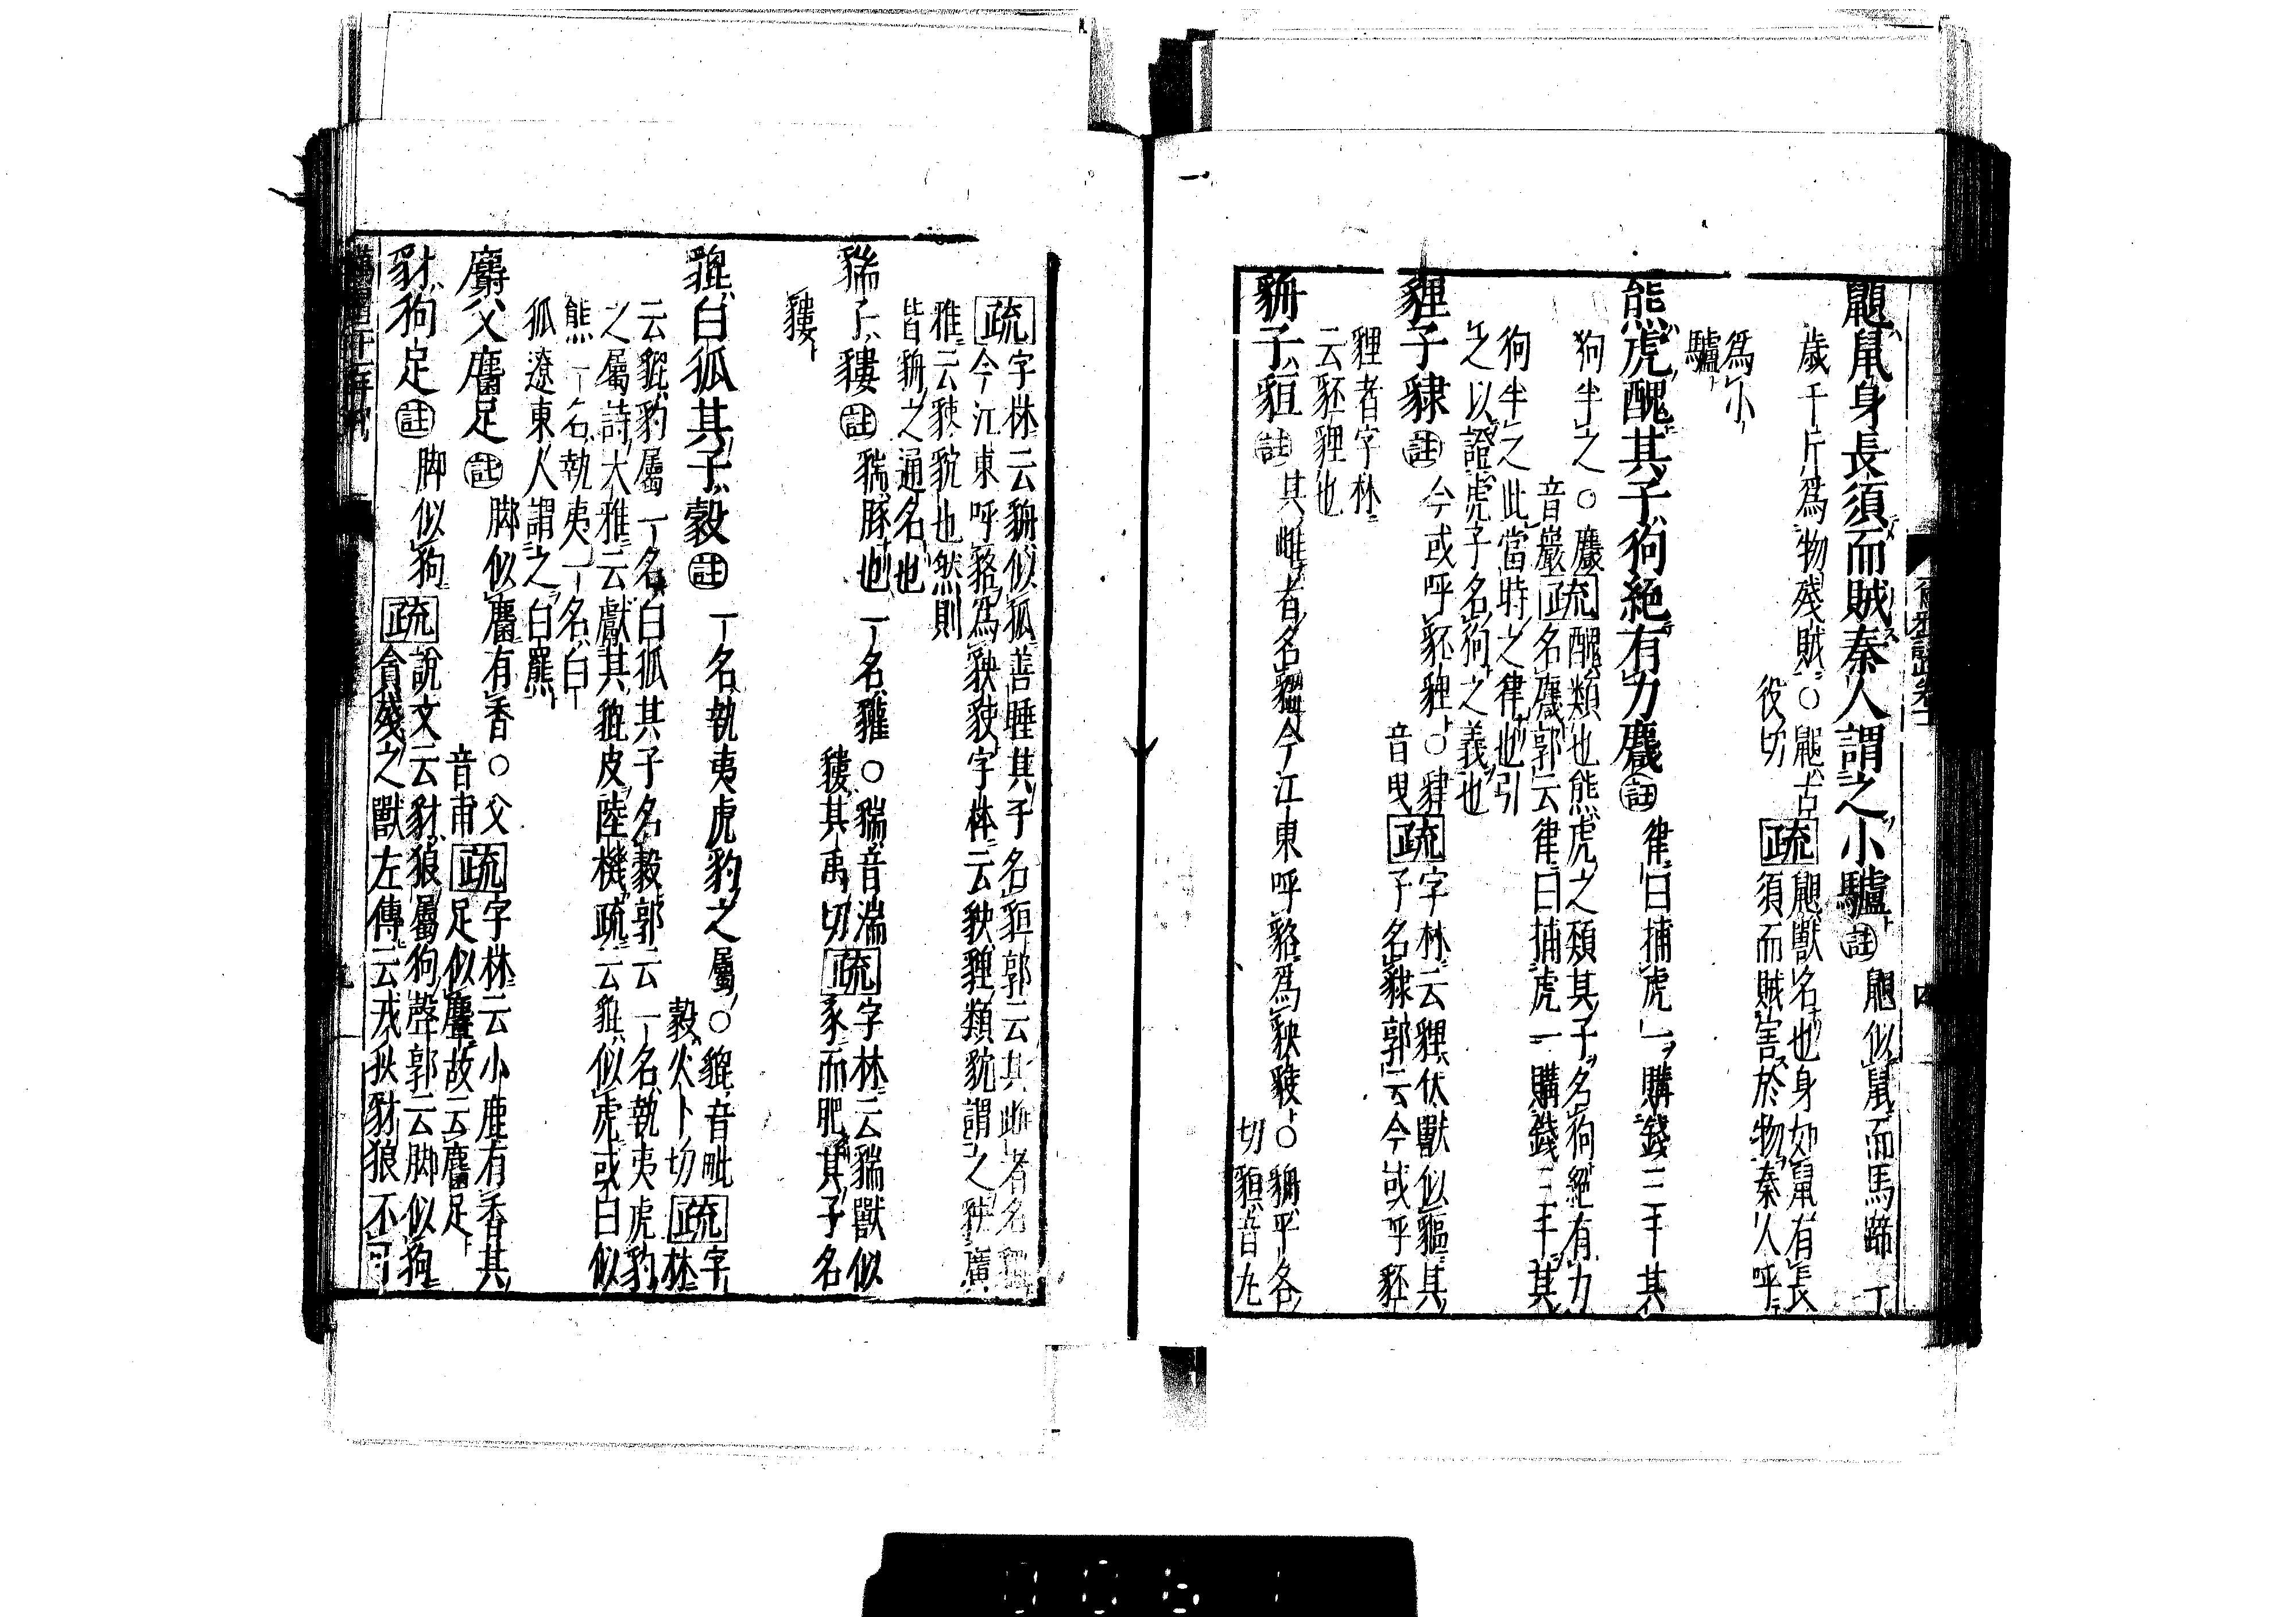 鼳鼠身長須而賊秦人謂之小驢註鼳似鼠而馬蹄一
歲千斤爲物殘賊○鼳古
役切
疏
鼳獸名也身如鼠有長
須而賊害於物秦人呼
爲小
驢
熊虎醜其子狗絕有力麙註律曰捕虎一購錢三千其
狗半之○麙
音巖
疏
醜類也熊虎之類其子名狗絕有力
名麙郭云律曰捕虎一購錢三千其
狗半之此當時之律也引
之以證虎子名狗之義也
貍子貄註今或呼豾貍○貄
音曳
疏
字林云貍伏獸似貙其
子名貄郭云今或呼豾
貍者字林
云豾貍也
貈子貆註其雌者名𧳅今江東呼貉爲䝟䝠○貈乎各
切貆音丸
疏
字林云貈似狐善睡其子名貆郭云其雌者名
今江東呼貉爲䝟䝠字林云䝟貍類貌謂之䝟廣
雅云䝟貌也然則
皆貈之通名也
貒子貗註貒豚也一名貛○貒音湍
貗其禹切
疏
字林云貒獸似
豕而肥其子名
貗
貔白狐其子豰註一名執夷虎豹之屬○貔音毗
豰火卜切
疏
字林
云貔豹屬一名白狐其子名豰郭云一名執夷虎豹
之屬詩大雅云獻其貔皮陸機疏云貔似虎或曰似
熊一名執夷一名白
狐遼東人謂之白羆
麝父麕足註脚似麕有香○父
音甫
疏
字林云小鹿有香其
足似麕故云麕足
豺狗足註脚似狗疏說文云豺狼屬狗聲郭云脚似狗
貪殘之獸左傳云戎狄豺狼不可
0061